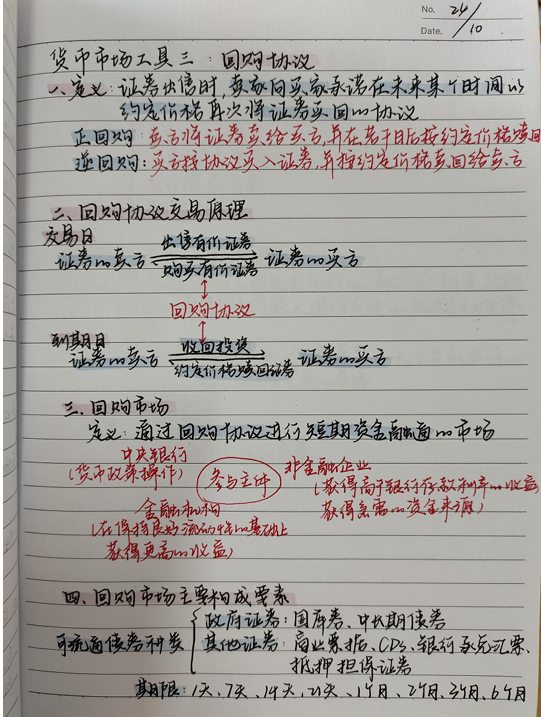 No. 24/
Date. 10
货币市场工具三:回购协议
一、定义:证券出售时,卖家向买家承诺在未来某个时间以
约定价格再次将证券买回的协议
正回购:卖方将证券卖给买方,并在若干日后按约定价格赎回
逆回购:买方按协议买入证券,并按约定价格卖回给卖方
二、回购协议交易原理
交易日
出售有价证券
证券的卖方 证券的买方
购买有价证券
回购协议
到期日
收回投资
证券的卖方 证券的买方
约定价格赎回证券
三、回购市场
定义:通过回购协议进行短期资金融通的市场
中央银行
(货币政策操作)
参与主体
非金融企业
(获得高于银行存款利率的收益,
获得急需的资金来源)
金融机构
(在保持良好流动性的基础上
获得更高的收益)
四、回购市场主要构成要素
可流通债券种类
政府证券:国库券、中长期债券
其他证券:商业票据、CDs、银行承兑汇票、
抵押担保证券
期限:1天、7天、14天、21天、1个月、2个月、3个月、6个月